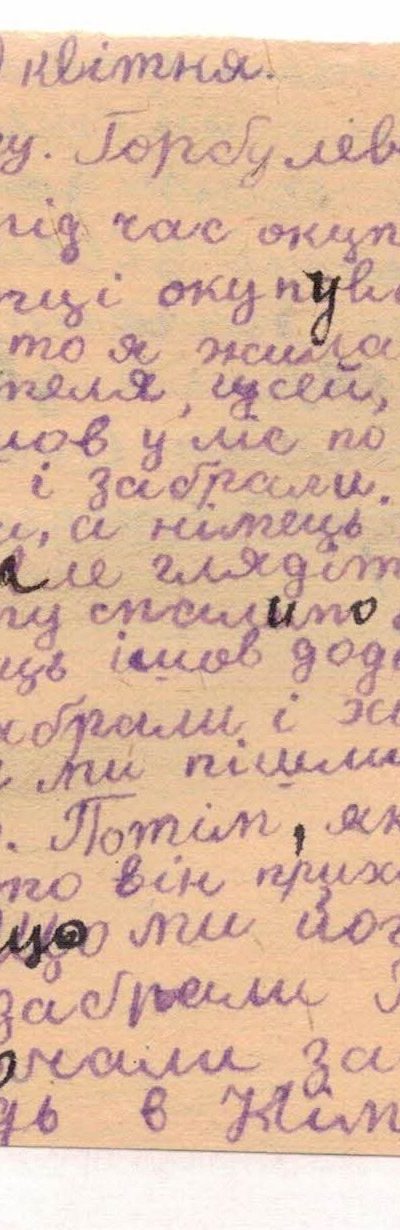 квітня.
у. Горбулів
під час окуп
нці окупува
то я жила
теля, цсей,
шов у ліс по
і забрали.
и, а німець
але глядіт
ту спалило
ць ішов дод
абрали і ж
и ми пішли
. Потім, як
то він прих
що ми йог
забрали
очали за
дь в Нім